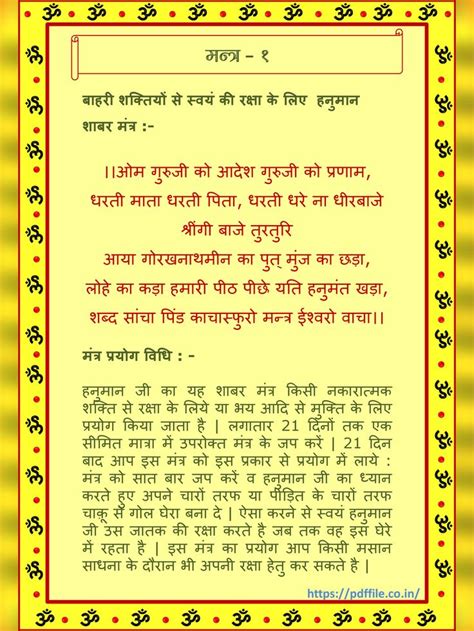 मन्त्र – १
बाहरी शक्तियों से स्वयं की रक्षा के लिए हनुमान
शाबर मंत्र :-
।।ओम गुरुजी को आदेश गुरुजी को प्रणाम,
धरती माता धरती पिता, धरती धरे ना धीरबाजे
श्रींगी बाजे तुरतुरि
आया गोरखनाथमीन का पुत् मुंज का छड़ा,
लोहे का कड़ा हमारी पीठ पीछे यति हनुमंत खड़ा,
शब्द सांचा पिंड काचास्फुरो मन्त्र ईश्वरो वाचा।।
मंत्र प्रयोग विधि : -
हनुमान जी का यह शाबर मंत्र किसी नकारात्मक
शक्ति से रक्षा के लिये या भय आदि से मुक्ति के लिए
प्रयोग किया जाता है | लगातार 21 दिनों तक एक
सीमित मात्रा में उपरोक्त मंत्र के जप करें | 21 दिन
बाद आप इस मंत्र को इस प्रकार से प्रयोग में लाये :
मंत्र को सात बार जप करें व हनुमान जी का ध्यान
करते हुए अपने चारों तरफ या पीड़ित के चारों तरफ
चाकू से गोल घेरा बना दे | ऐसा करने से स्वयं हनुमान
जी उस जातक की रक्षा करते है जब तक वह इस घेरे
में रहता है | इस मंत्र का प्रयोग आप किसी मसान
साधना के दौरान भी अपनी रक्षा हेतु कर सकते है |
https://pdffile.co.in/